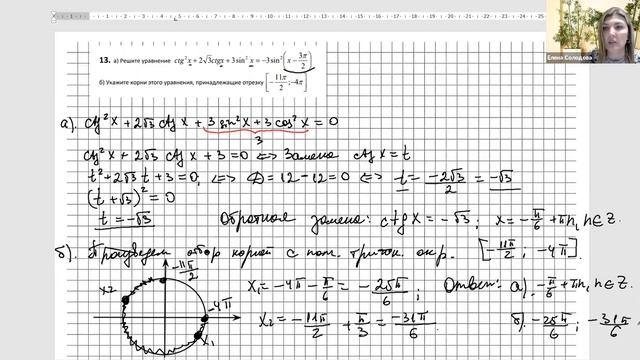 Елена Солодова
13. а) Решите уравнение ctg²x + 2√3ctgx + 3sin²x = −3sin²(x − 3π/2)
б) Укажите корни этого уравнения, принадлежащие отрезку [−11π/2; −4π]
а). ctg²x + 2√3 ctgx + 3 sin²x + 3 cos²x = 0
3
ctg²x + 2√3 ctgx + 3 = 0 <=> Замена ctgx = t
t² + 2√3 t + 3 = 0, <=> D = 12 − 12 = 0 <=> t = −2√3/2 = −√3
(t + √3)² = 0
t = −√3 Обратная замена: ctgx = −√3; x = −π/6 + πn, n∈Z.
б). Произведем отбор корней с пом. тригон. окр. [−11π/2; −4π].
−11π/2
x₂
−4π
x₁
x₁ = −4π − π/6 = −25π/6; Ответ: а). −π/6 + πn, n∈Z.
x₂ = −11π/2 + π/3 = −31π/6 б). −25π/6; −31π/6